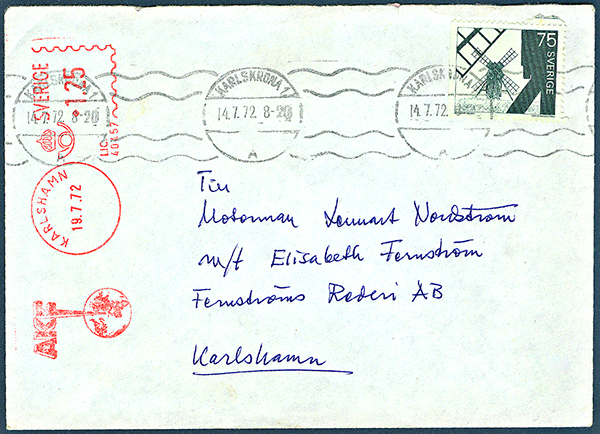 75 SVERIGE
SVERIGE 1.25
LIC. 40457
KARLSKRONA 1
14.7.72 8-20
A
KARLSKRONA 1
14.7.72 8-20
A
KARLSKRONA 1
14.7.72
A
KARLSHAMN
19.7.72
AKF
Till
Motorman Lennart Nordström
m/t Elisabeth Fernström
Fernströms Rederi AB
Karlshamn